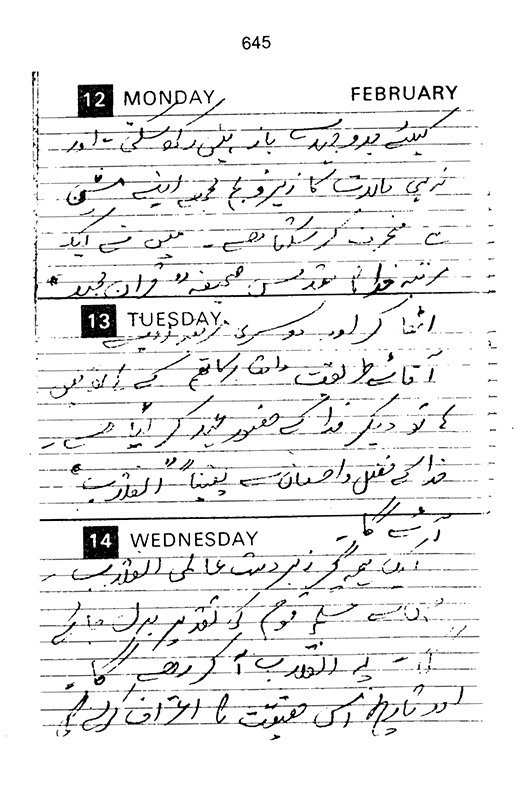 645
12 MONDAY FEBRUARY
کیلئے جدوجہد سے باز نہیں رکھ سکتی - اور
نہ ہی بادشاہت کا زیر و بم مجھے اپنے مشن
سے منحرف کر سکتا ہے - میں نے ایک
مرتبہ خدا کا مقدس صحیفہ "قرآن مجید"
13 TUESDAY
اٹھا کر اور دوسری مرتبہ اپنے
آقائے طریقت دامت برکاتہم کے
دیگر خدا کے حضور عہد کر لیا ہے -
خدا کے فضل و احسان سے یقیناً "انقلاب"
آئے گا -
14 WEDNESDAY
ایک ہمہ گیر زبردست عالمی انقلاب -
سے مسلم قوم کی تقدیر بدل جائے
یہ انقلاب آ کر رہے گا
اور تاریخ اس حقیقت کا اعتراف کرے گی